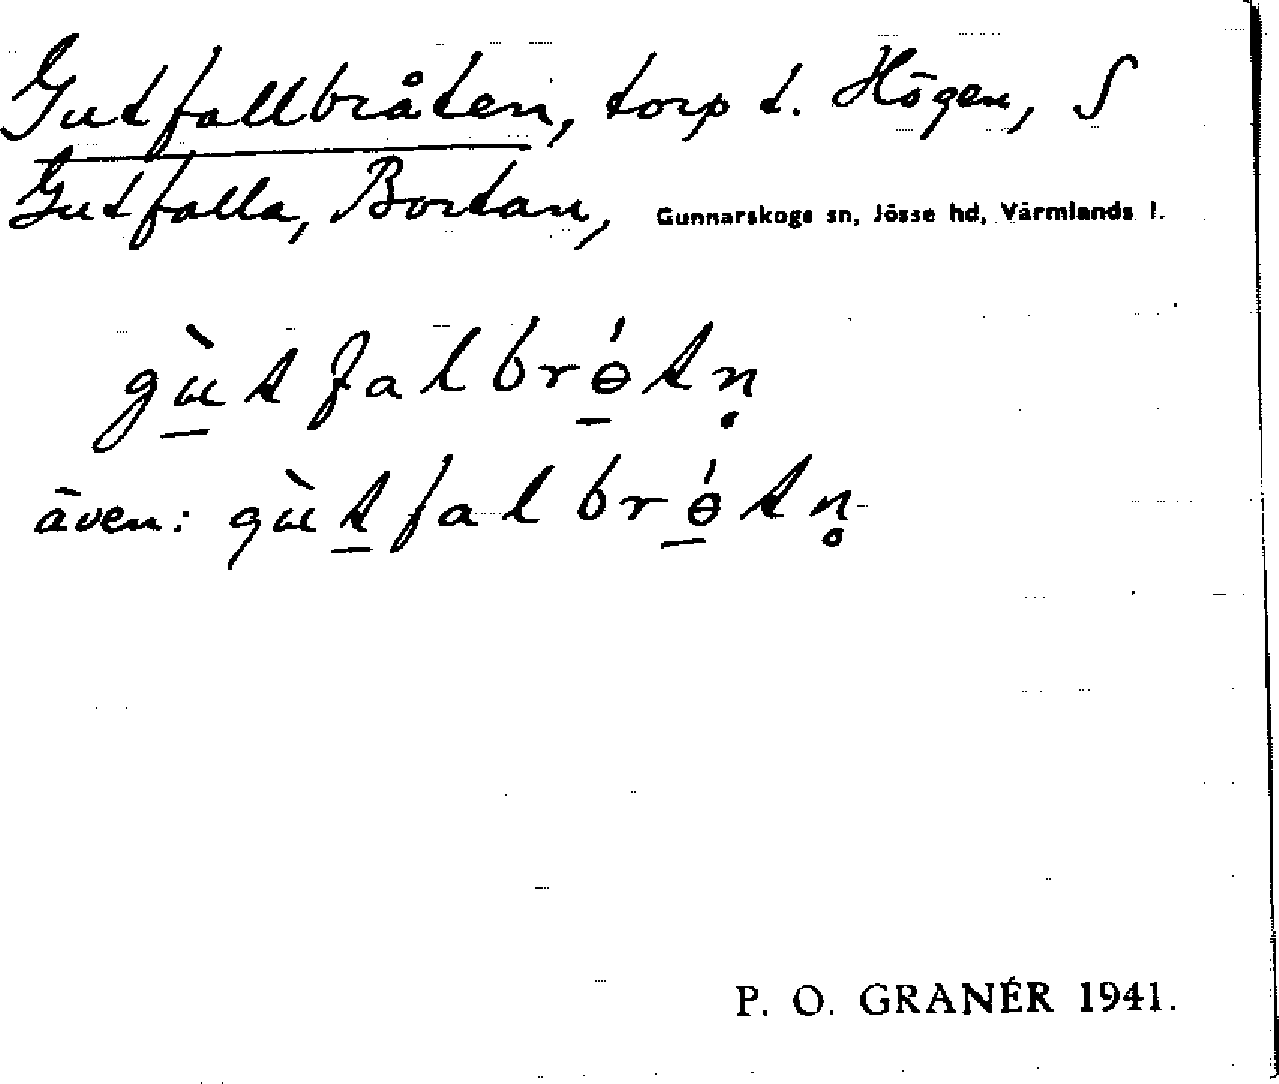 Gutfallbråten, torp t. Högen, S
Gutfalla, Bortan, Gunnarskogs sn, Jösse hd, Värmlands l.
gùtfalbrɵ́tṇ
även: gùtfalbrɵ́tn̥
P. O. GRANÉR 1941.